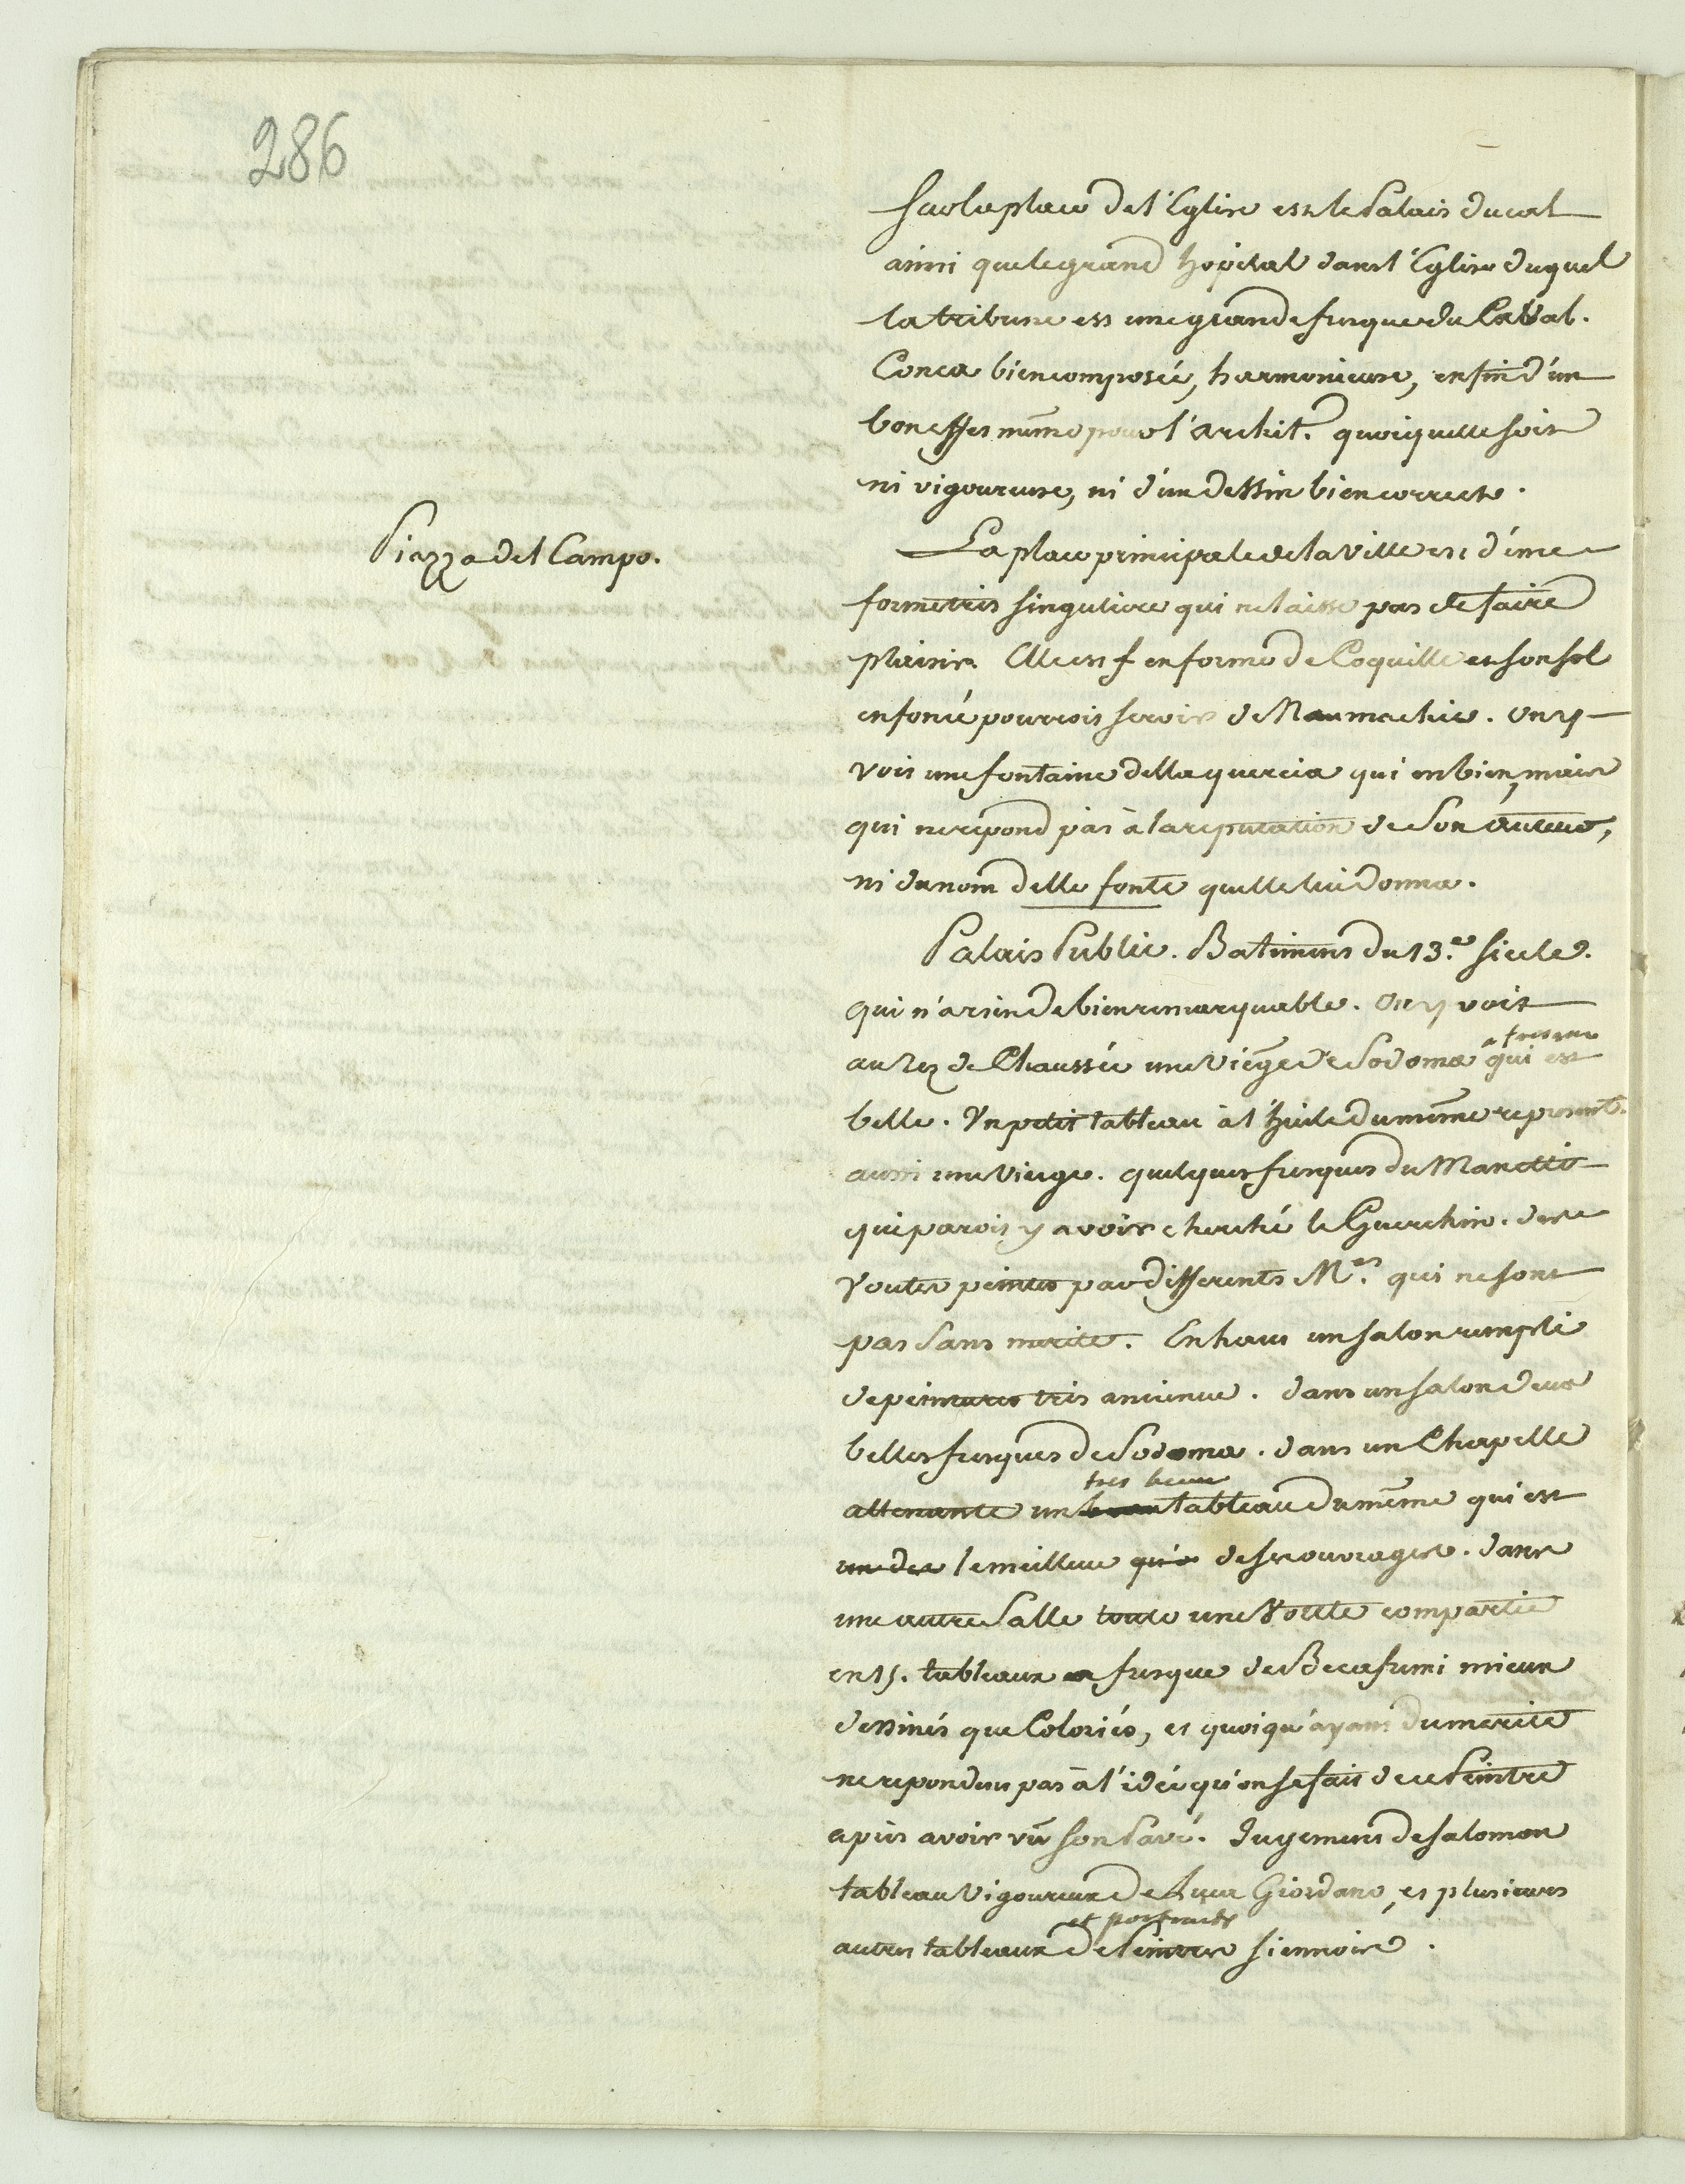 286
Sur la place de l'Eglise est le Palais ducal
ainsi que le grand hopital dans l'Eglise duquel
la tribune est une grande fresque du Caval.
Conca bien composée, harmonieuse, enfin d'un
bon effet même pour l'archit. quoiquelle soit
ni vigoureuse, ni d'un dessin bien correct.
Piazza del Campo.
La place principale de la Ville est d'une
forme tres singuliere qui ne laisse pas de faire
plaisir. Elle est en forme de Coquille et son sol
enfoncé pourroit servir de Naumachie. on y
voit une fontaine della quercia qui est bien, mais
qui ne repond pas à la reputation de son auteur,
ni du nom delle fonte quelle lui donna.
Palais Public. Batiment du 13.e siecle.
qui n'a rien de bien remarquable. on y voit
au rez de Chaussée une Vierge de Sodoma a fresque qui est
belle. Un petit tableau à l'huile du même represent.
aussi une Vierge. quelques fresques du Manetti
qui paroit y avoir cherché le Guerchin. des
Voutes peintes par differents M.es qui ne sont
pas sans merite. En haut un salon rempli
de peintures tres ancienne. dans un salon deux
belles fresques de Sodoma. dans un Chapelle
attenante un beau tres beau tableau du même qui est
un des le meilleur qu'o de ses ouvrages. dans
une autre Salle toute une Voute compartie
en 15. tableaux a fresque de Becafumi mieux
dessinés que Coloriés, et quoiqu'ayant du merite
ne repondent pas à l'idée qu'on se fait de ce Peintre
apres avoir vû son Pavé. Jugement de Salomon
tableau Vigoureux de Luca Giordano, et plusieurs
autres tableaux et portraits de Peintres siennois.